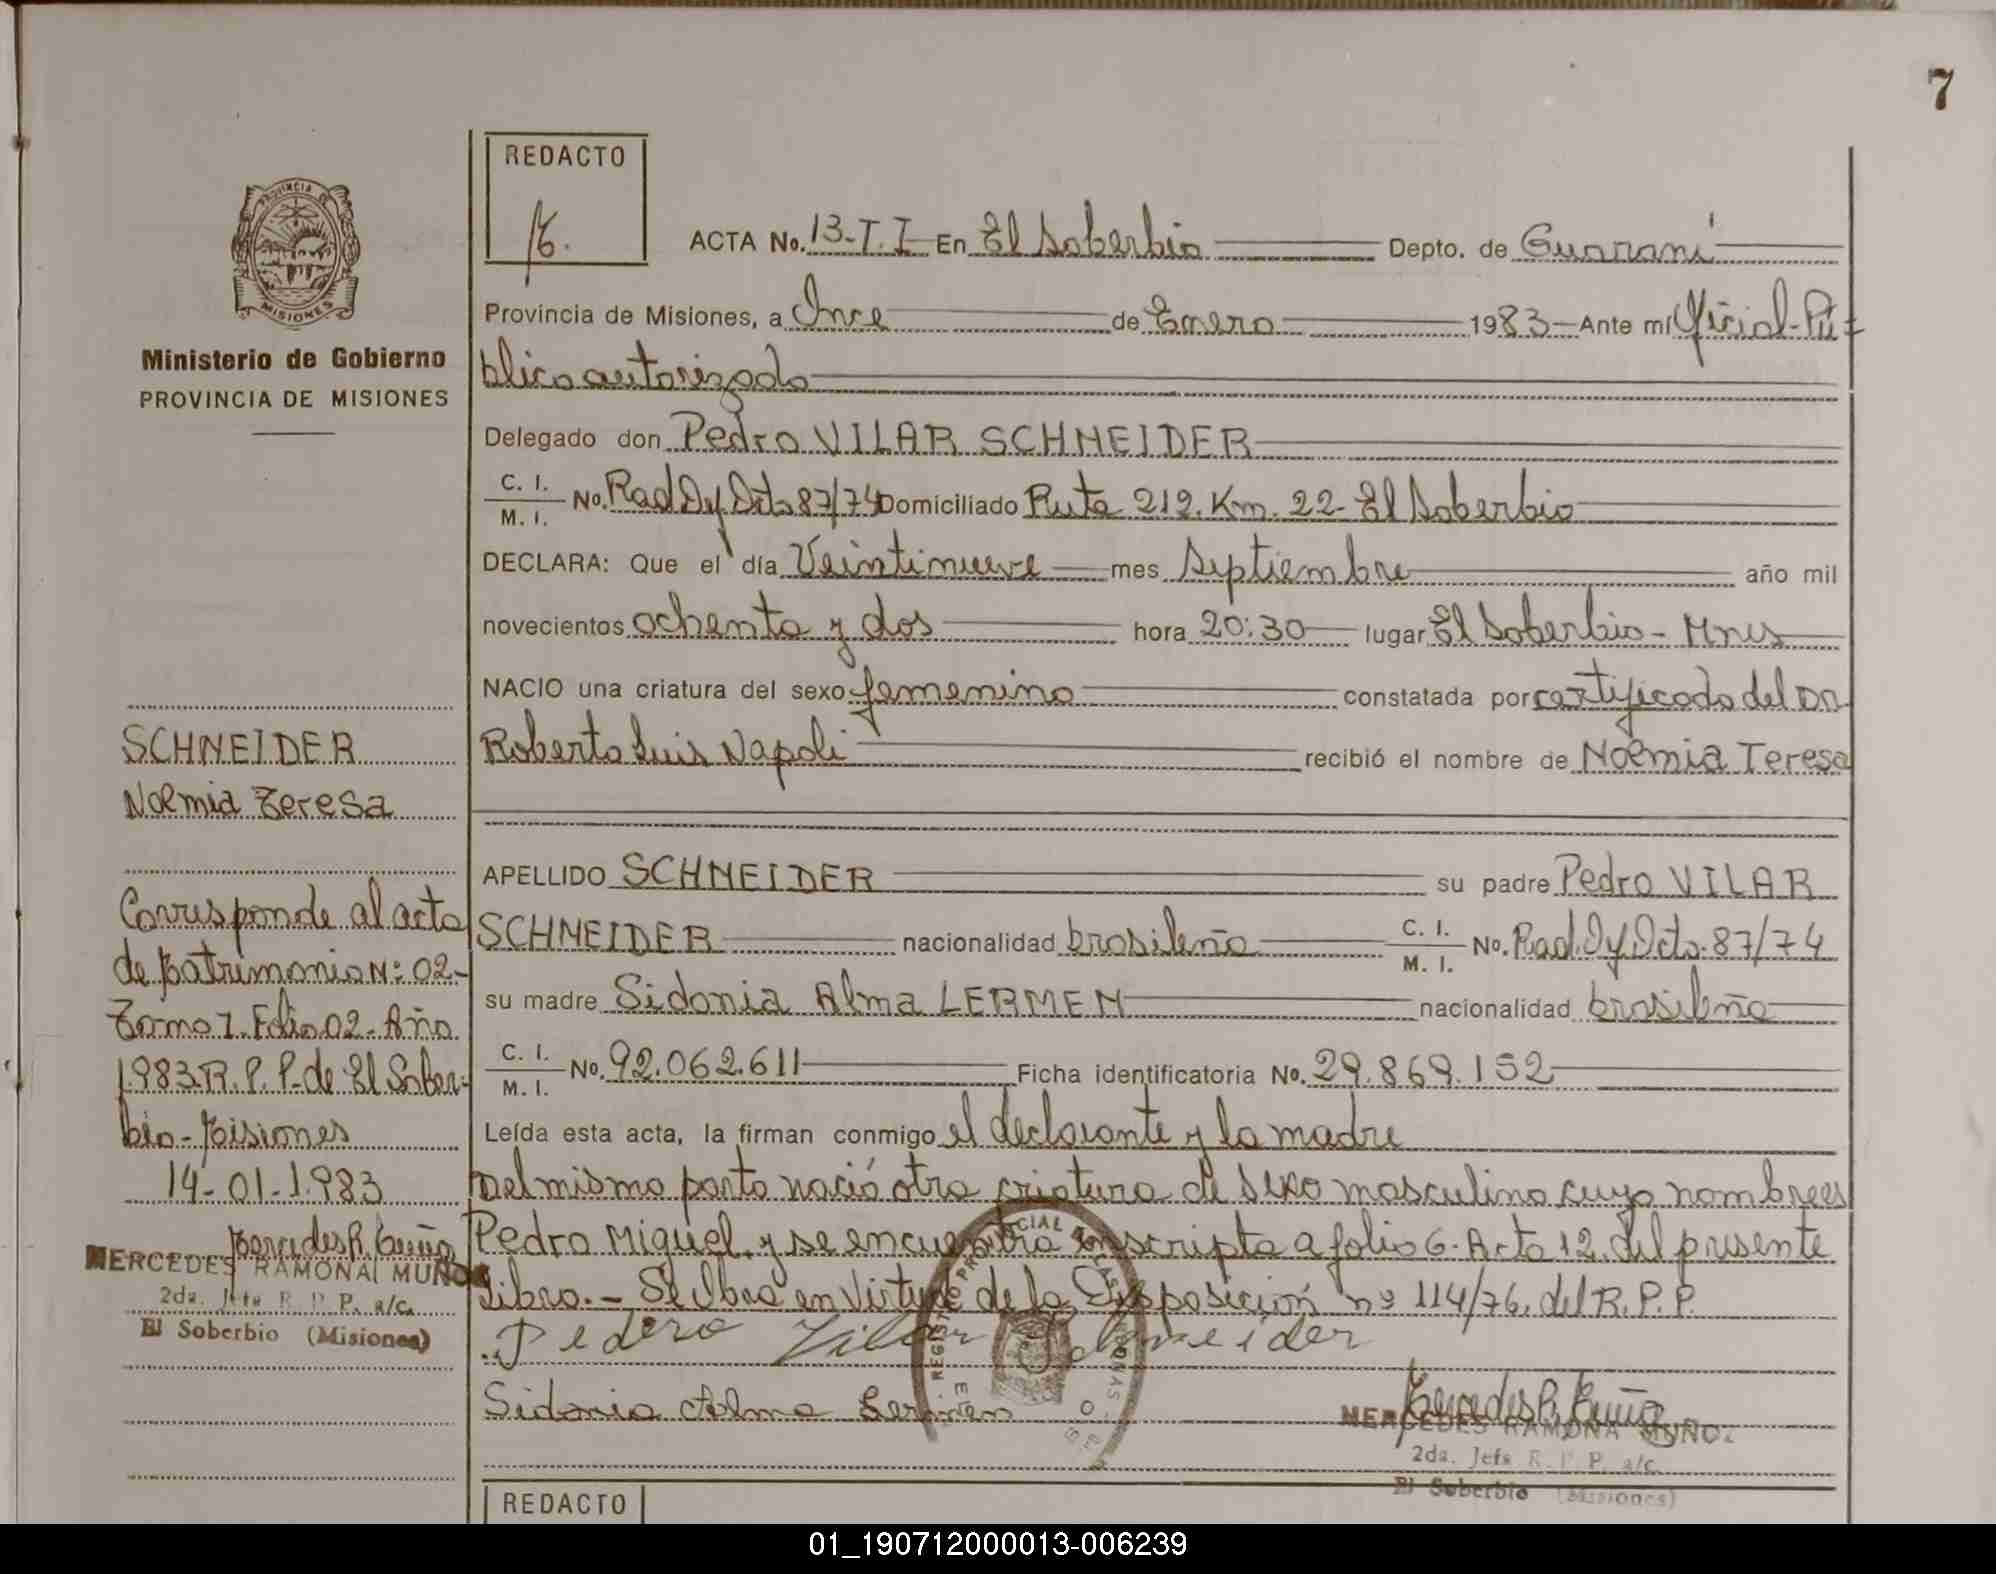 7
REDACTO
ACTA No. 13-T. I En El Soberbio Depto. de Guaraní
Provincia de Misiones, a Once de Enero 1983 Ante mí Oficial Pú-
blico autorizado
Delegado don Pedro VILAR SCHNEIDER
C. I.
M. I. No. Rad Dy Dcto 87/74 Domiciliado Ruta 212. Km. 22- El Soberbio
DECLARA: Que el día Veintinueve mes Septiembre año mil
novecientos ochenta y dos hora 20:30 lugar El Soberbio - Mnes
NACIO una criatura del sexo femenino constatada por certificado del Dr
Roberto Luis Napoli recibió el nombre de Noemia Teresa
APELLIDO SCHNEIDER su padre Pedro VILAR
SCHNEIDER nacionalidad brasileña C. I.
M. I. No. Rad. Dy Dcto. 87/74
su madre Sidonia Alma LERMEN nacionalidad brasileña
C. I.
M. I. No. 92.062.611 Ficha identificatoria No. 29.869.152
Leída esta acta, la firman conmigo el declarante y la madre
Del mismo parto nació otra criatura de sexo masculino cuyo nombre es
Pedro Miguel, y se encuentra inscripta a folio 6. Acta 12. del presente
libro.- en Virtud de la Disposición nº 114/76. del R. P. P.
Pedro Vilar Schneider
Sidonia Alma Lermen
MERCEDES RAMONA MUÑOZ
2da. Jefa R. P. P. a/c.
El Soberbio (Misiones)
REDACTO
PROVINCIA DE
MISIONES
Ministerio de Gobierno
PROVINCIA DE MISIONES
SCHNEIDER
Noemia Teresa
Corresponde al acta
de Matrimonio Nº 02-
Tomo I. Folio 02- Año
1983 R. P. P. de El Sober-
bio - Misiones
14- 01- 1983
MERCEDES RAMONA MUÑOZ
2da. Jefa R. P. P. a/c.
El Soberbio (Misiones)
01_190712000013-006239